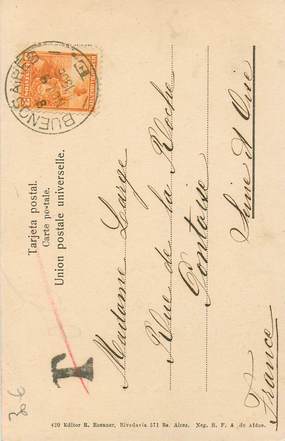 Tarjeta postal.
Carte postale.
Union postale universelle.
BUENOS AIRES
T
Madame Large
Rue de la Roche
Pontoise
Seine et Oise
France
420 Editor R. Rosauer, Rivadavia 571 Bs. Aires. Neg. H. F. A. de Afdos.